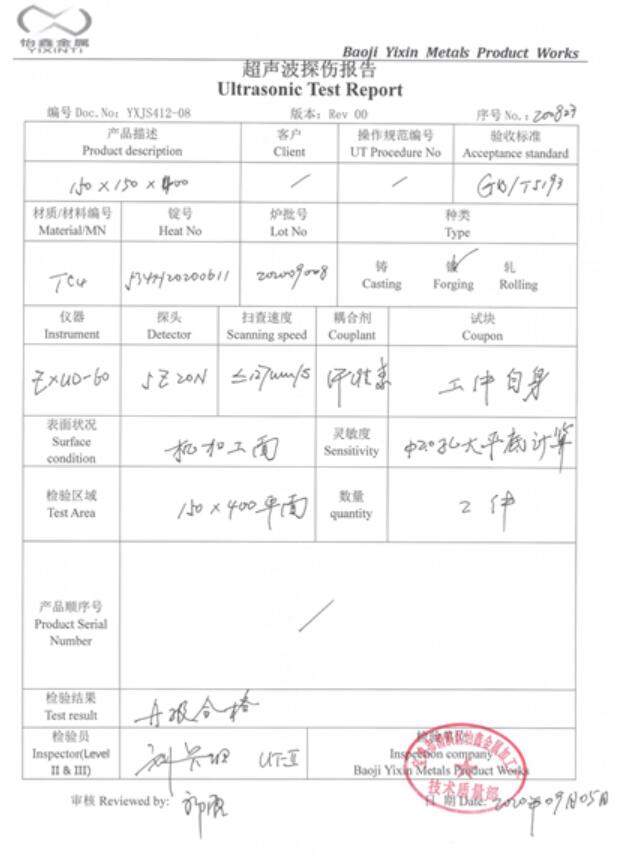 怡鑫金属
YIXINTI
Baoji Yixin Metals Product Works
超声波探伤报告
Ultrasonic Test Report
编号 Doc.No: YXJS412-08 版本: Rev 00 序号 No.: 200827
产品描述 客户 操作规范编号 验收标准
Product description Client UT Procedure No Acceptance standard
150×150×400 / / GB/T5193
材质/材料编号 锭号 炉批号 种类
Material/MN Heat No Lot No Type
TC4 202009008
铸 锻 ✓ 轧
Casting Forging Rolling
仪器 探头 扫查速度 耦合剂 试块
Instrument Detector Scanning speed Couplant Coupon
ZXUD-60 5Z20N ≤127mm/s 纤维素 工件自身
表面状况 灵敏度
Surface Sensitivity
condition
机加工面 φ2.0孔大平底计算
检验区域 数量
Test Area quantity
150×400平面 2件
产品顺序号
Product Serial
Number
/
检验结果
Test result
A级合格
检验员
Inspector(Level
II & III)
UT-II
检验单位
Inspection company
Baoji Yixin Metals Product Works
怡鑫金属加工
技术质量部
审核 Reviewed by: 日 期 Date: 2020年09月05日